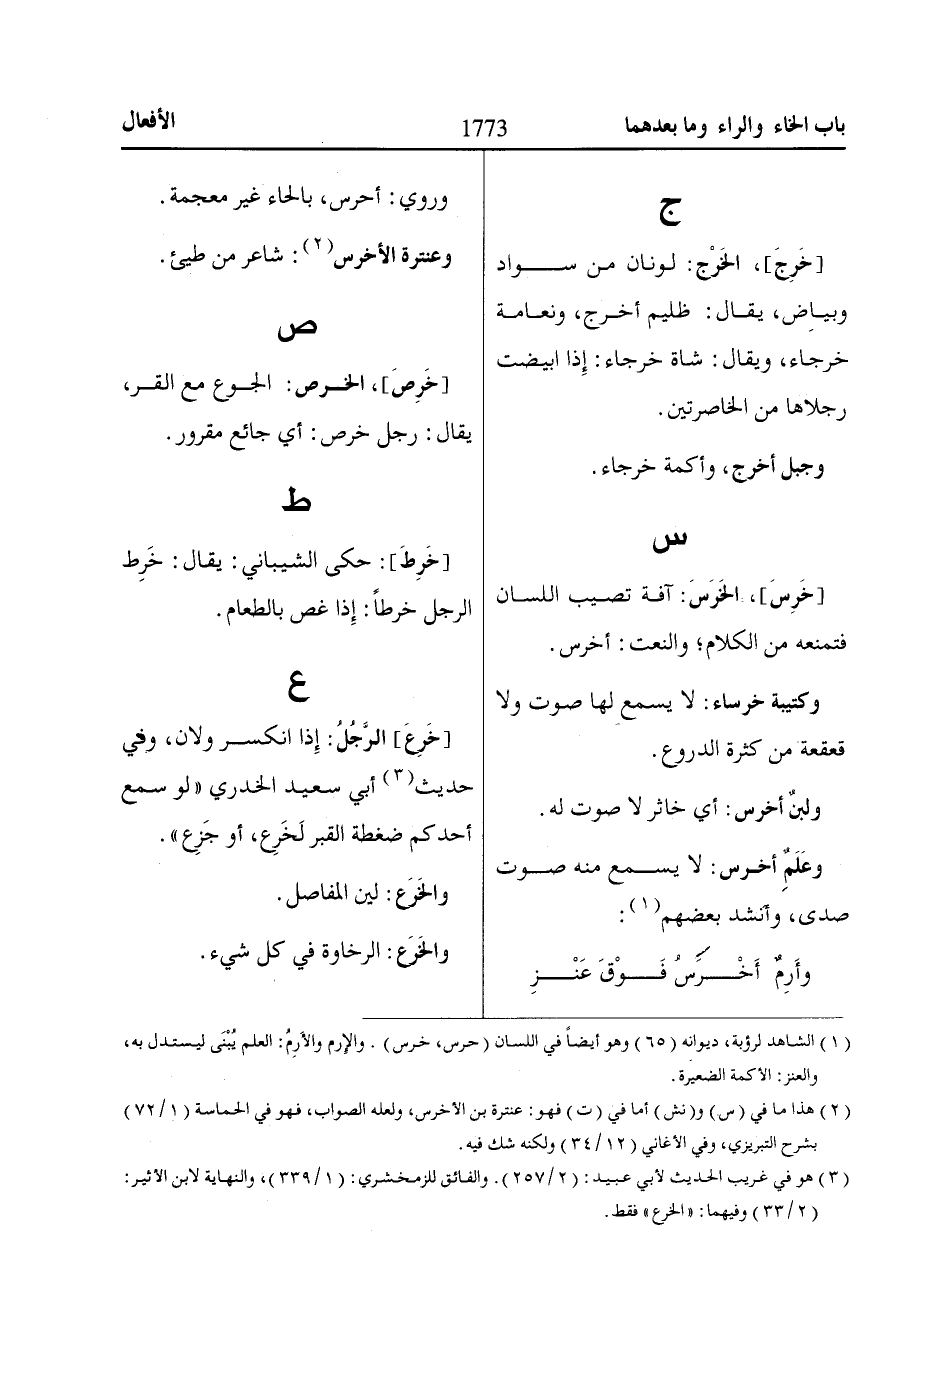 باب الخاء والراء وما بعدهما 1773 الأفعال
ج
[خَرِجَ]، الخَرْج: لونان من سواد
وبياض، يقال: ظليم أخرج، ونعامة
خرجاء، ويقال: شاة خرجاء: إذا ابيضت
رجلاها من الخاصرتين.
وجبل أخرج، وأكمة خرجاء.
س
[خَرِسَ]، الخَرَسَ: آفة تصيب اللسان
فتمنعه من الكلام؛ والنعت: أخرس.
وكتيبة خرساء: لا يسمع لها صوت ولا
قعقعة من كثرة الدروع.
ولبنٌ أخرس: أي خاثر لا صوت له.
وعَلَمٌ أخرس: لا يسمع منه صوت
صدى، وأنشد بعضهم(١):
وأَرِمٌ أَخْرَسُ فَوْقَ عَنْزِ
وروي: أحرس، بالحاء غير معجمة.
وعنترة الأخرس(٢): شاعر من طيئ.
ص
[خَرِصَ]، الخرص: الجوع مع القر،
يقال: رجل خرص: أي جائع مقرور.
ط
[خَرِطَ]: حكى الشيباني: يقال: خَرِط
الرجل خرطاً: إذا غص بالطعام.
ع
[خَرِعَ] الرَّجُلُ: إذا انكسر ولان، وفي
حديث(٣) أبي سعيد الخدري «لو سمع
أحدكم ضغطة القبر لَخَرِع، أو جَزِع».
والخَرَع: لين المفاصل.
والخَرَع: الرخاوة في كل شيء.
(١) الشاهد لرؤبة، ديوانه (٦٥) وهو أيضاً في اللسان (حرس، خرس). والإرم والأرِمُ: العلم يُبْنَى ليستدل به،
والعنز: الأكمة الصغيرة.
(٢) هذا ما في (س) و(نش) أما في (ت) فهو: عنترة بن الأخرس، ولعله الصواب، فهو في الحماسة (٧٢/١)
بشرح التبريزي، وفي الأغاني (٣٤/١٢) ولكنه شك فيه.
(٣) هو في غريب الحديث لأبي عبيد: (٢٥٧/٢). والفائق للزمخشري: (٣٣٩/١)، والنهاية لابن الأثير:
(٣٣/٢) وفيهما: «الخرع» فقط.